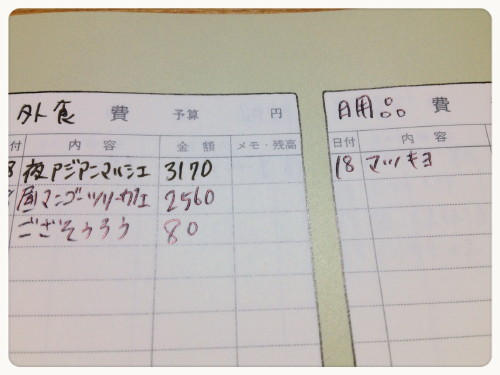 外食 費 予算 円
付 内容 金額 メモ・残高
夜アジアンマルシェ 3170
昼マンゴーツリーカフェ 2560
ござそうろう 80
日用品 費
日付 内容
18 マツキヨ